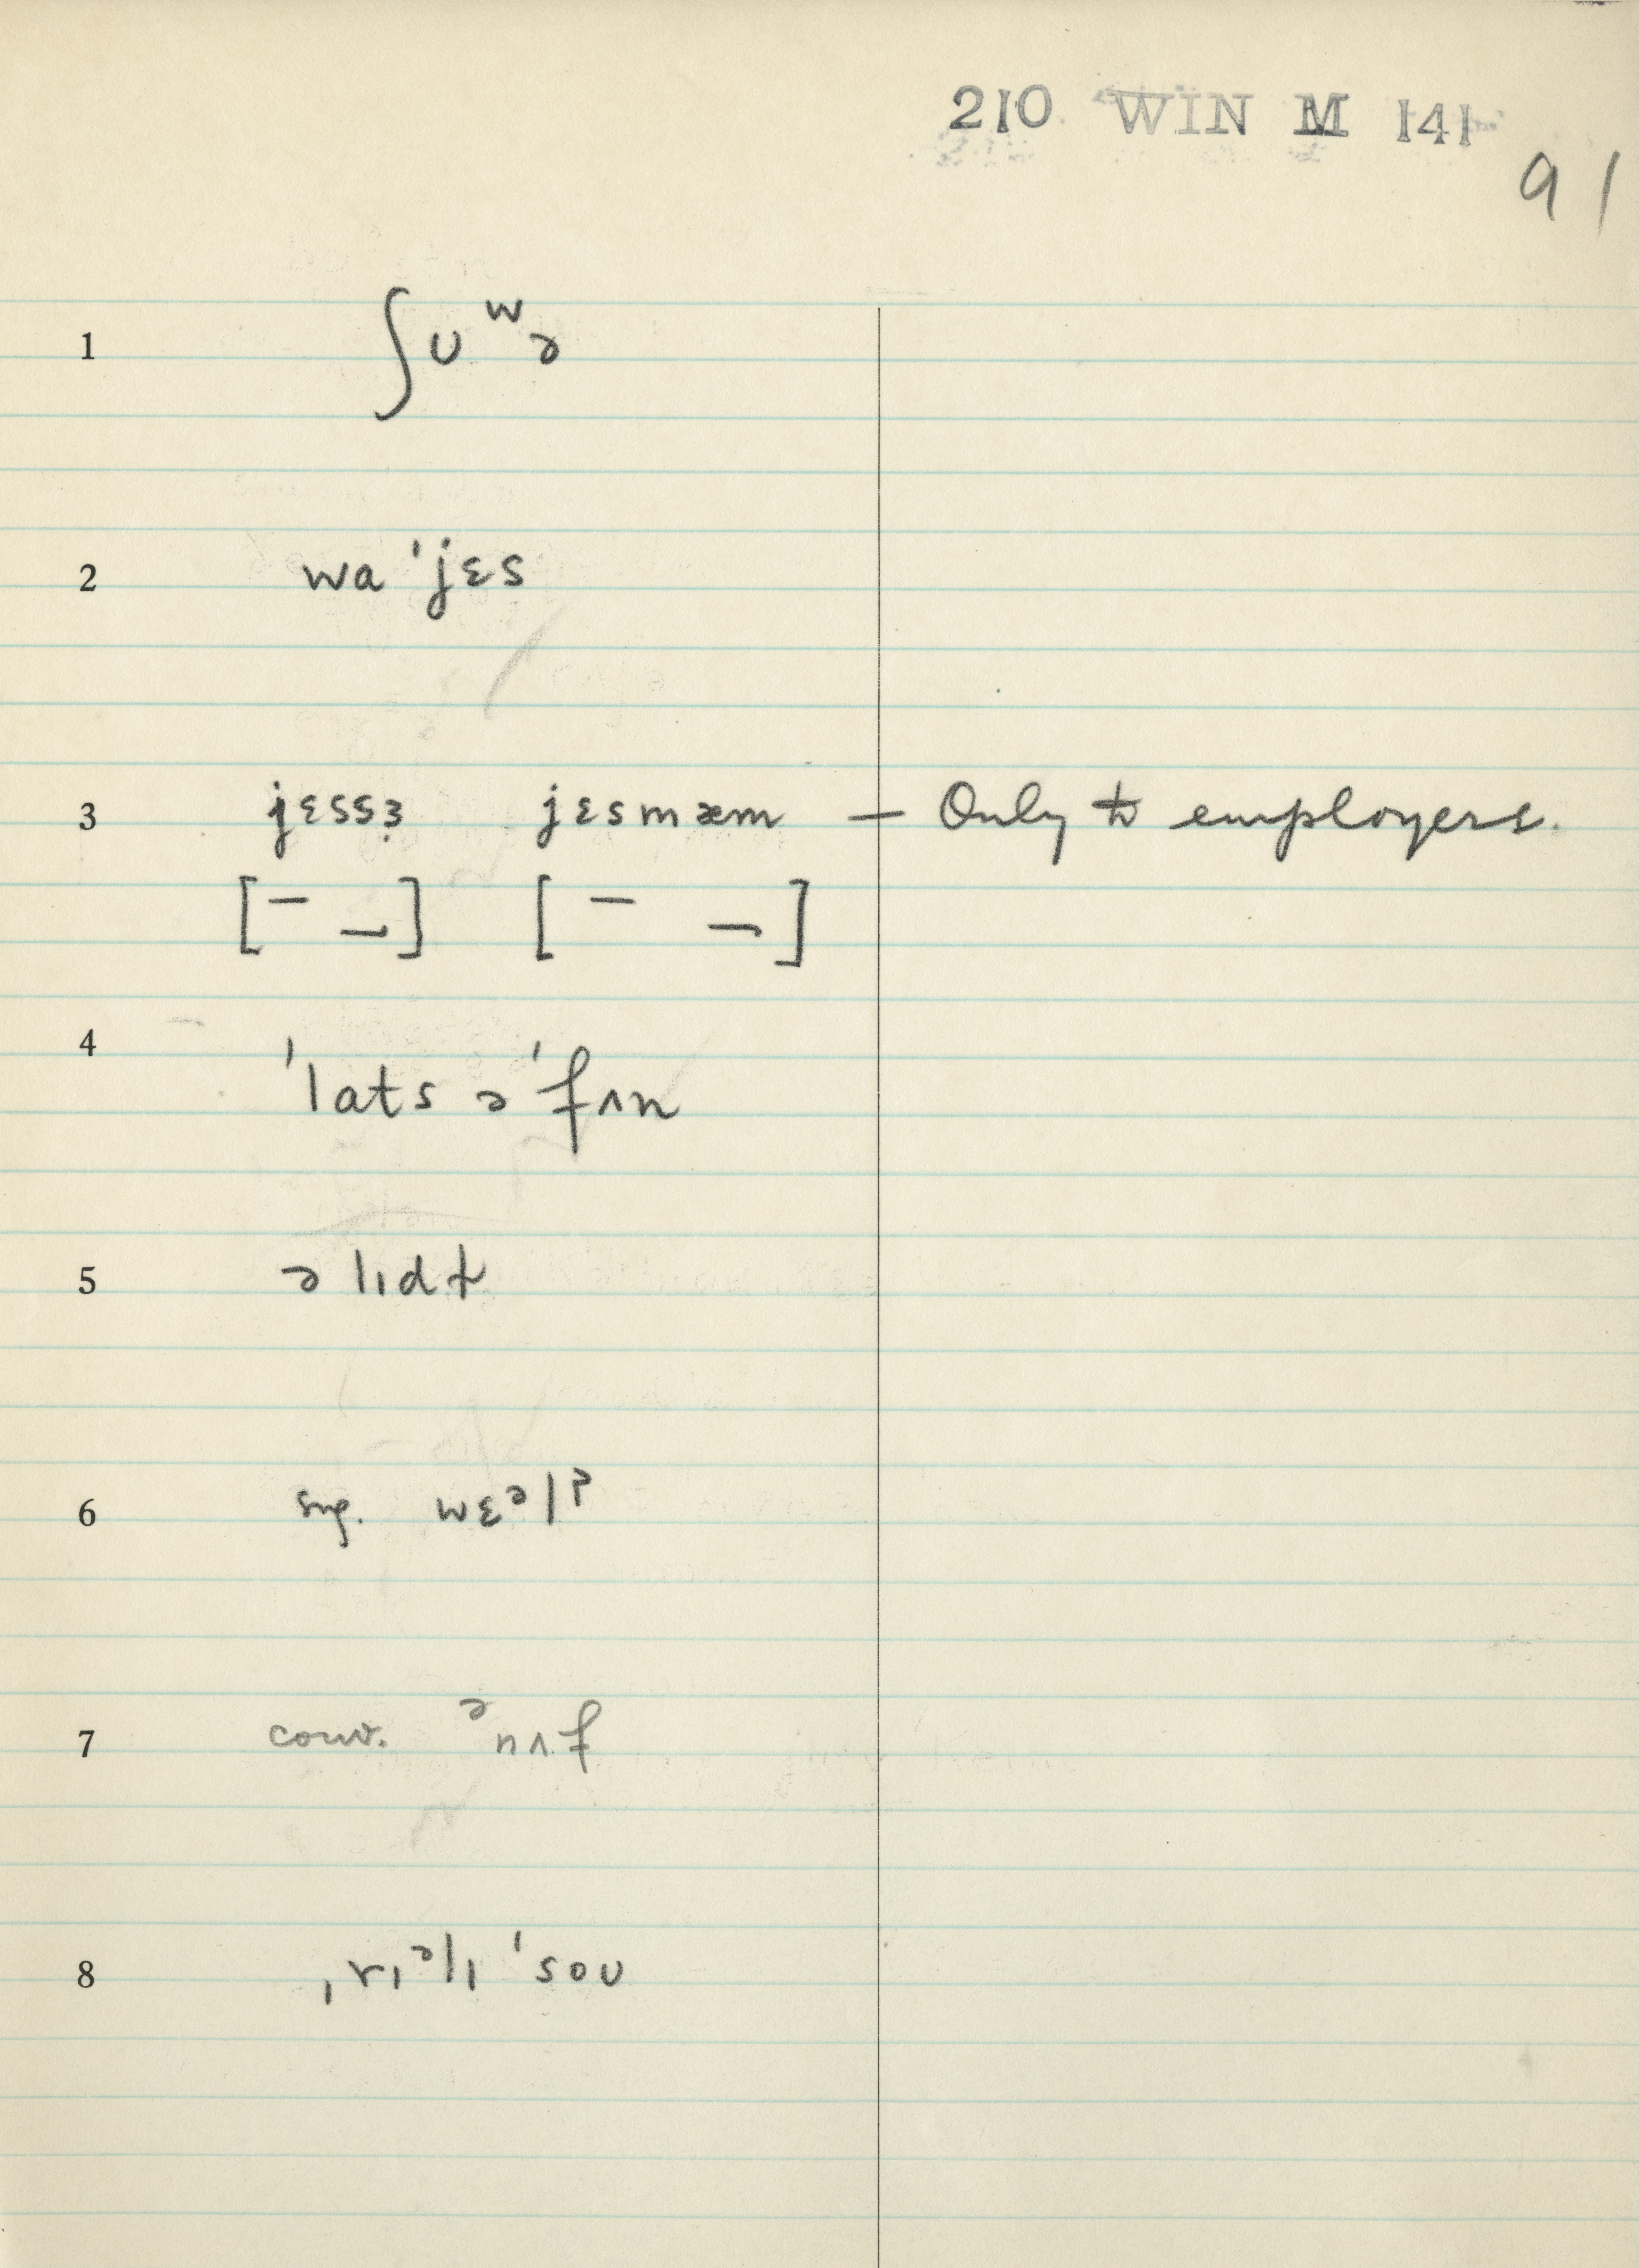 210 WIN M 141
91
1 ʃʊʷə
2 wa ˈjɛs
3 jɛssɜ jɛsmæm — Only to employers.
[¯ _] [¯ ¬]
4 ˈlats əˈfʌn
5 ə lɪdt
6 sug. wɛᵊl?
7 conv. ᵊnʌf
8 ˌrɪᵊlɪ ˈsoʊ